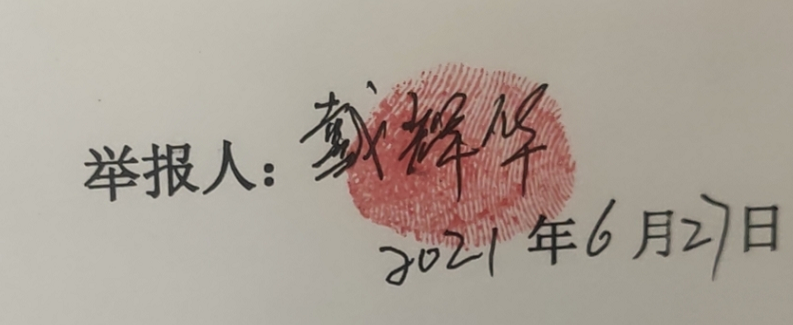 举报人：戴辉华
2021年6月27日